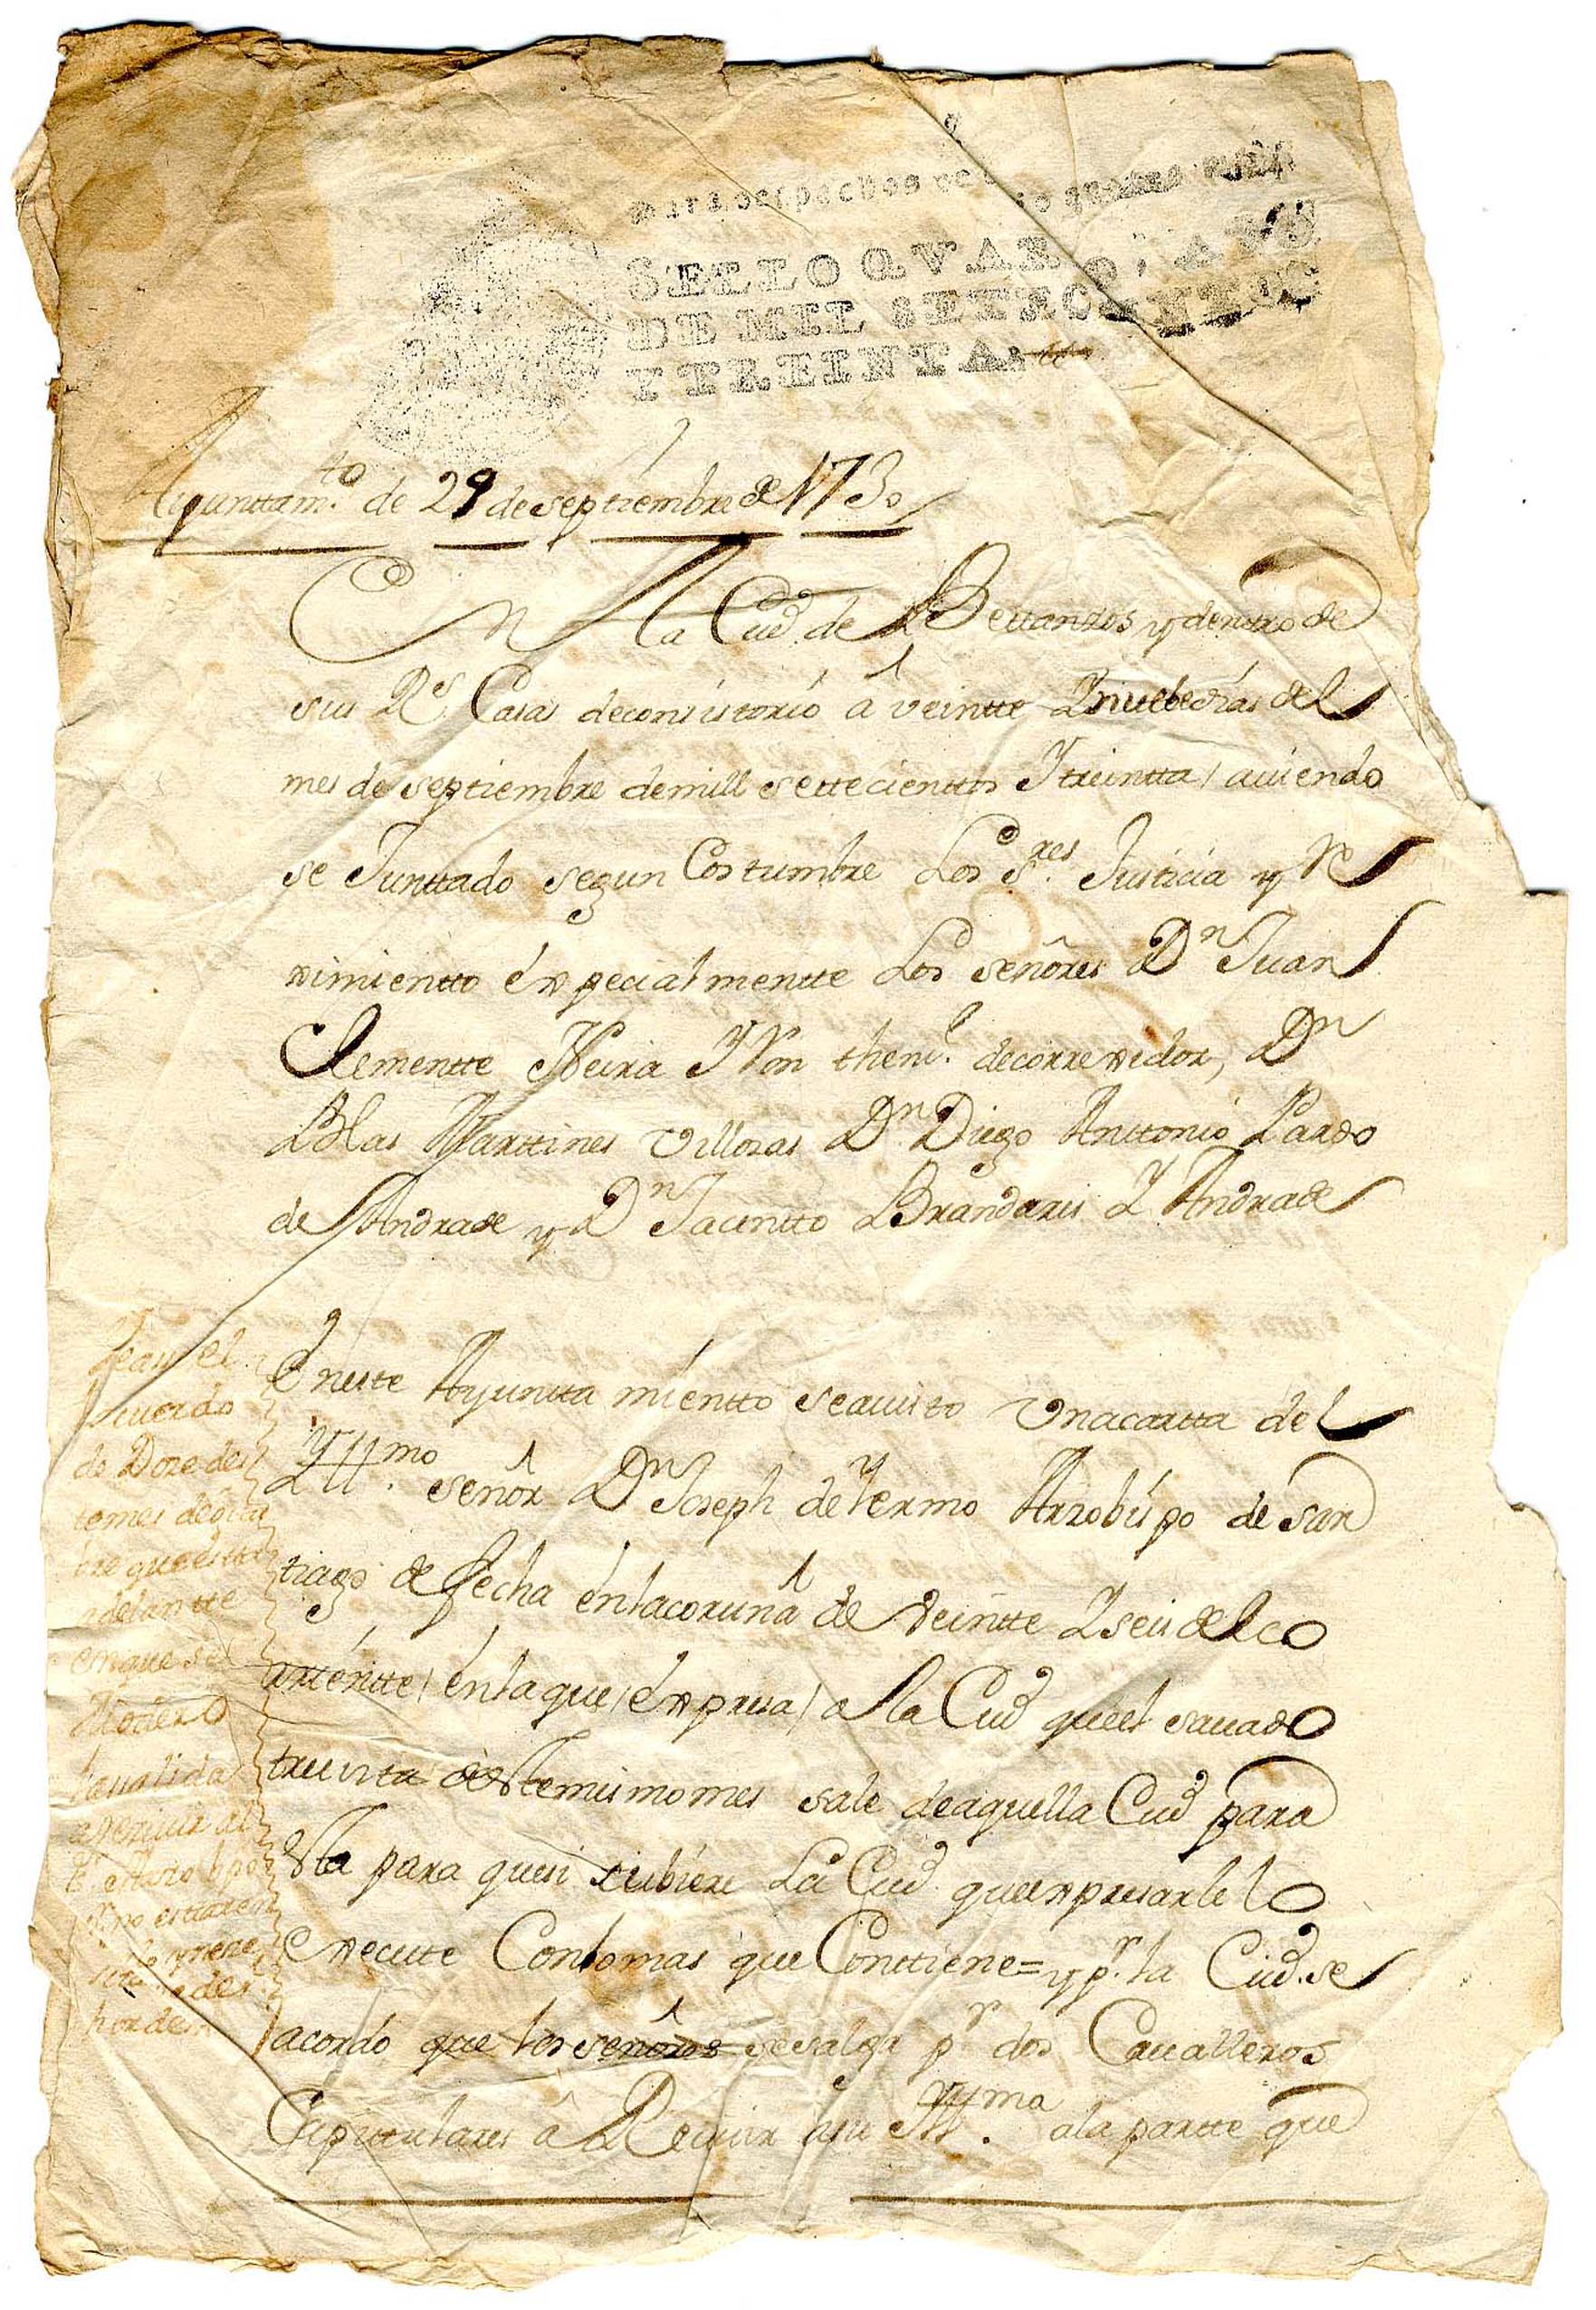 Para despachos de
SELLO QVARTO, AÑO
DE MIL SETECIENTOS
Y TREINTA.
Ayunttam.to de 29 de septiembre de 1730
En la Ciud. de Bettanzos y dentro de
sus R.s Casas de consistorio â veintte Y nuebe dias del
mes de septiembre de mill settecienttos Y treintta / auiendo
se Junttado segun Costumbre Los S.res Justicia y Re
ximientto expecialmentte Los señores Dn Juan
Clementte Neira Y Ron thent.e de correxidor, Dn
Blas Marttines Villozas Dn Diego Anttonio Pardo
de Andrade y Dn Jacintto Brandaris Y Andrade
Eneste Ayunttamientto seauisto Vna cartta del
Yll.mo señor Dn Joseph de Yermo Arzobispo de San
tiago de fecha en la coruña de veintte Y seis del co
rrientte / en la que / expresa / a la Ciud que el sauado
treinta deste mismo mes sale de aquella Ciud para
esta para que si tubiere La Ciud. que expresarle lo
execute Con lo mas que Conttiene = y p.r la Ciud. se
acordó que los señores se salga pr dos Caualleros
Capitulares â Reciuir a su Yll.ma a la partte que
Vease el
acuerdo
de Doze des
te mes de
bre que esta
adelantte
en que se